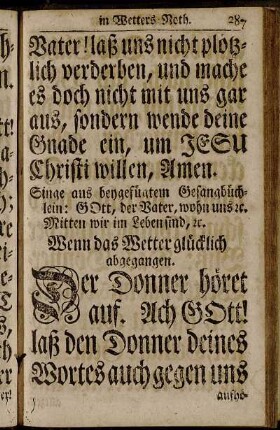 in Wetters-Noth. 287
Vater! laß uns nicht plötz-
lich verderben, und mache
es doch nicht mit uns gar
aus, sondern wende deine
Gnade ein, um JESU
Christi willen, Amen.
Singe aus beygefügtem Gesangbüch-
lein: GOtt, der Vater, wohn uns ꝛc.
Mitten wir im Leben sind, ꝛc.
Wenn das Wetter glücklich
abgegangen.
Der Donner höret
auf. Ach GOtt!
laß den Donner deines
Wortes auch gegen uns
aufhö-